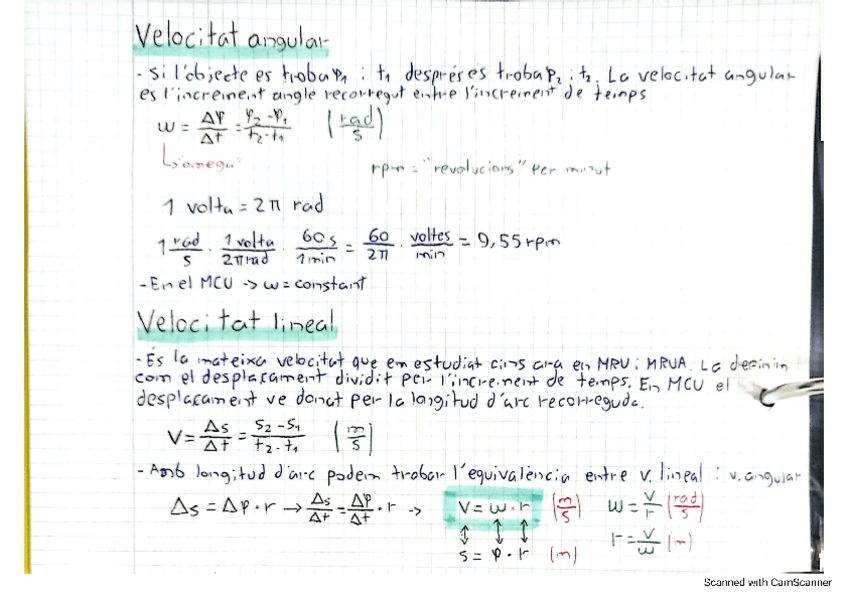 Velocitat angular
- Si l'objecte es troba φ₁ i t₁ després es troba φ₂ i t₂. La velocitat angular
és l'increment angle recorregut entre l'increment de temps
w = Δφ/Δt = φ₂-φ₁/t₂-t₁ (rad/s)
↳ omega
rpm = "revolucions" per minut
1 volta = 2π rad
1 rad/s · 1 volta/2π rad · 60 s/1 min = 60/2π · voltes/min = 9,55 rpm
- En el MCU -> w = constant
Velocitat lineal
- És la mateixa velocitat que em estudiat fins ara en MRU i MRUA. La definim
com el desplaçament dividit per l'increment de temps. En MCU el
desplaçament ve donat per la longitud d'arc recorreguda.
V = Δs/Δt = s₂-s₁/t₂-t₁ (m/s)
- Amb longitud d'arc podem trobar l'equivalència entre v. lineal i v. angular
Δs = Δφ · r → Δs/Δt = Δφ/Δt · r -> V = w · r (m/s) w = v/r (rad/s)
s = φ · r (m) r = v/w (m)
Scanned with CamScanner